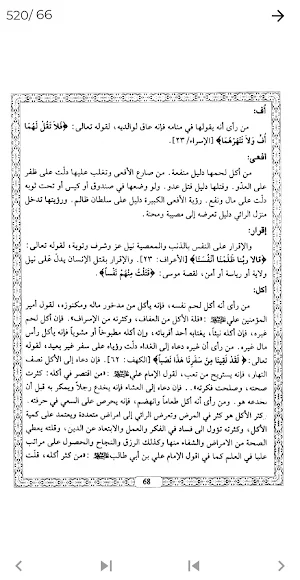 520/ 66
أف:
من رأى أنه يقولها في منامه فإنه عاق لوالديه، لقوله تعالى: ﴿فَلاَ تَقُلْ لَهُمَا
أُفٍّ وَلاَ تَنْهَرْهُمَا﴾ [الإسراء/٢٣].
أفعى:
من أكل لحمها دليل منفعة. من صارع الأفعى وتغلب عليها دلّت على ظفر
على العدو. وقتلها دليل قتل عدو. ولو وضعها في صندوق أو كيس أو تحت ثوبه
دلّت على مال ونفع. رؤية الأفعى الكبيرة دليل على سلطان ظالم. ورؤيتها تدخل
منزل الرائي دليل تعرضه إلى مصيبة ومحنة.
إقرار:
والإقرار على النفس بالذنب والمعصية نيل عز وشرف وتوبة، لقوله تعالى:
﴿قالا ربنا ظلمنا أنفسنا﴾ [الأعراف: ٢٣]. والإقرار بقتل الإنسان يدلّ على نيل
ولاية أو رياسة أو أمن، لقصة موسى: ﴿قَتَلْتُ مِنْهُمْ نَفْساً﴾.
أكل:
من رأى أنه أكل لحم نفسه، فإنه يأكل من مدخور ماله ومكنوزه، لقول أمير
المؤمنين علي: «قلة الأكل من العفاف، وكثرته من الإسراف». فإن أكل لحم
غيره، فإن أكله نيئاً، يغتابه أحد أقربائه، وإن أكله مطبوخاً أو مشوياً فإنه يأكل رأس
مال غيره. من رأى أن غيره دعاه إلى الغداء دلّت رؤياه على سفر غير بعيد، لقوله
تعالى: ﴿لَقَدْ لَقِينَا مِنْ سَفَرِنَا هَذَا نَصَباً﴾ [الكهف: ٦٢]. فإن دعاه إلى الأكل نصف
النهار، فإنه يستريح من تعب، لقول الإمام علي: «من اقتصر في أكله: كثرت
صحته، وصلحت فكرته». فإن دعاه إلى العشاء فإنه يخدع رجلاً ويمكر به قبل أن
يخدعه هو. ومن رأى أنه أكل طعاماً وانهضم، فإنه يحرص على السعي في حرفته.
كثر الأكل هو كثر في المرض وتعرض الرائي إلى امراض متعددة ويعتمد على كمية
الأكل، وكثرته تؤول الى فساد في الفكر والعمل والابتعاد عن الدين، وقلته يعطي
الصحة من الامراض والشفاء منها وكذلك الرزق والنجاح والحصول على مراتب
عليا في العلم كما في اقول الإمام علي بن أبي طالب: «من كثر أكله، قلّت
68